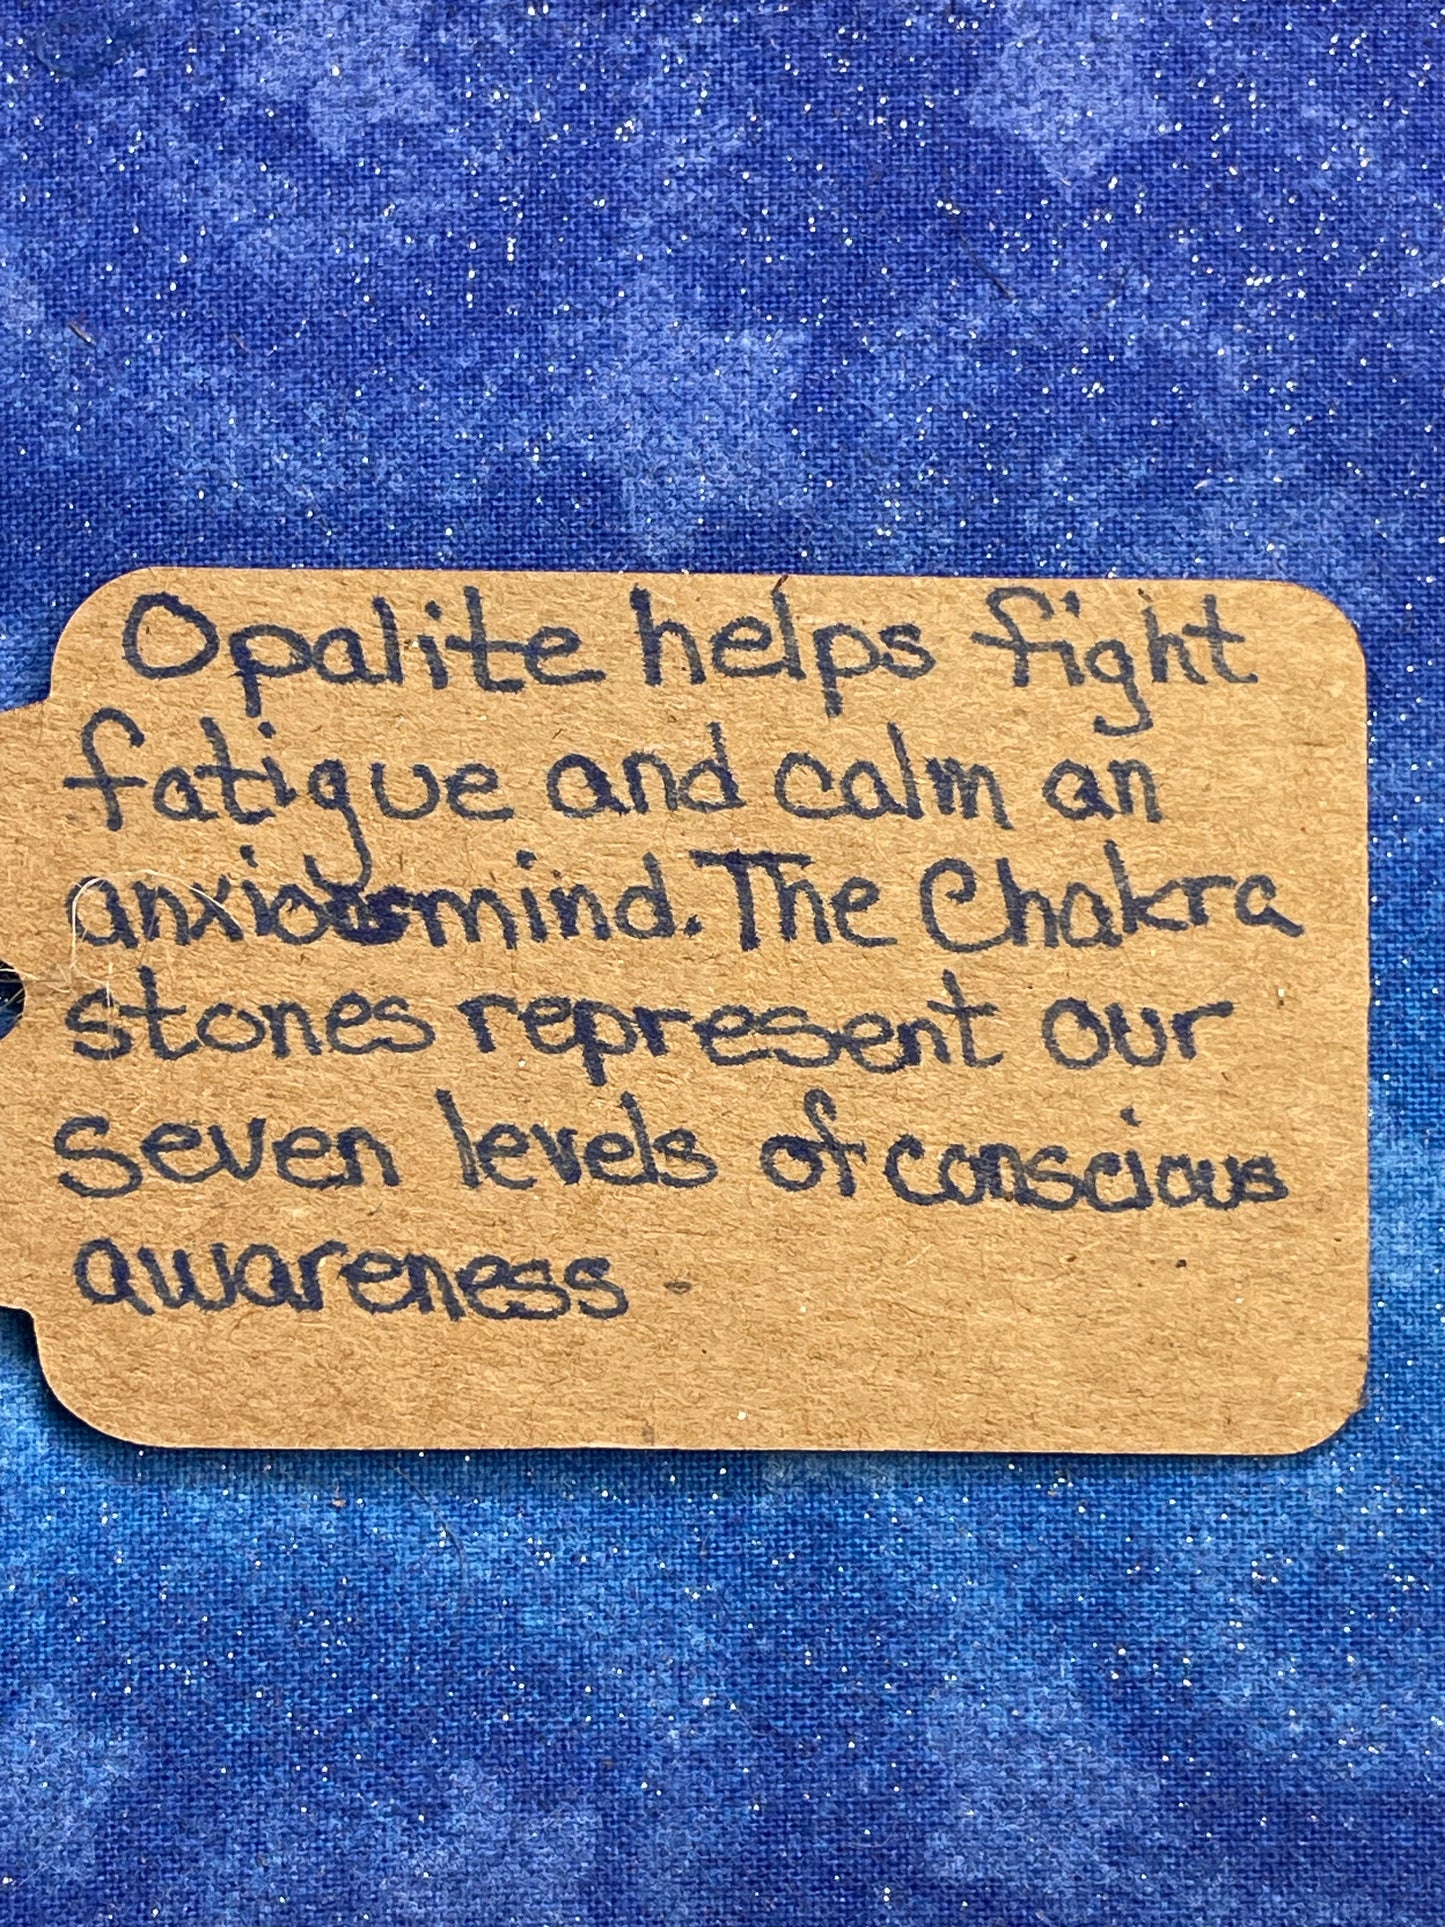 Opalite helps fight
fatigue and calm an
anxious mind. The Chakra
stones represent our
seven levels of conscious
awareness